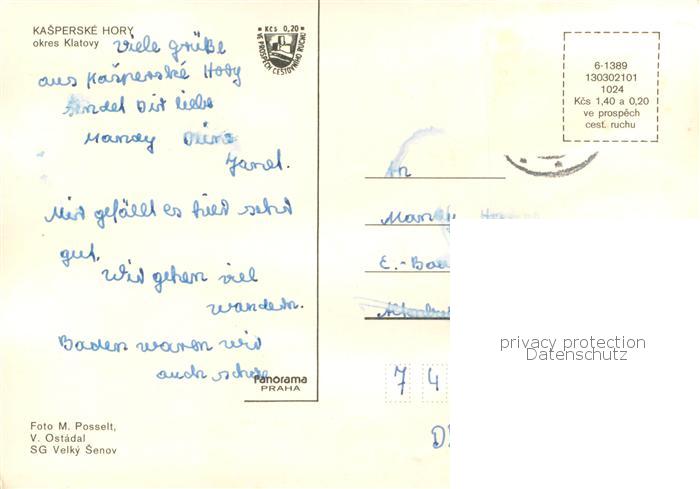 KAŠPERSKÉ HORY
okres Klatovy
Viele grüße
aus Kašperské Hory
sendet Dir liebe
Mandy Deine
Janet.
Mir gefällt es hier sehr
gut.
Wir gehen viel
wandern.
Baden waren wir
auch schon
Kčs 0,20
VE PROSPĚCH CESTOVNÍHO RUCHU
6-1389
130302101
1024
Kčs 1,40 a 0,20
ve prospěch
cest. ruchu
An
E.-
7 4
D
privacy protection
Datenschutz
Panorama
PRAHA
Foto M. Posselt,
V. Ostádal
SG Velký Šenov